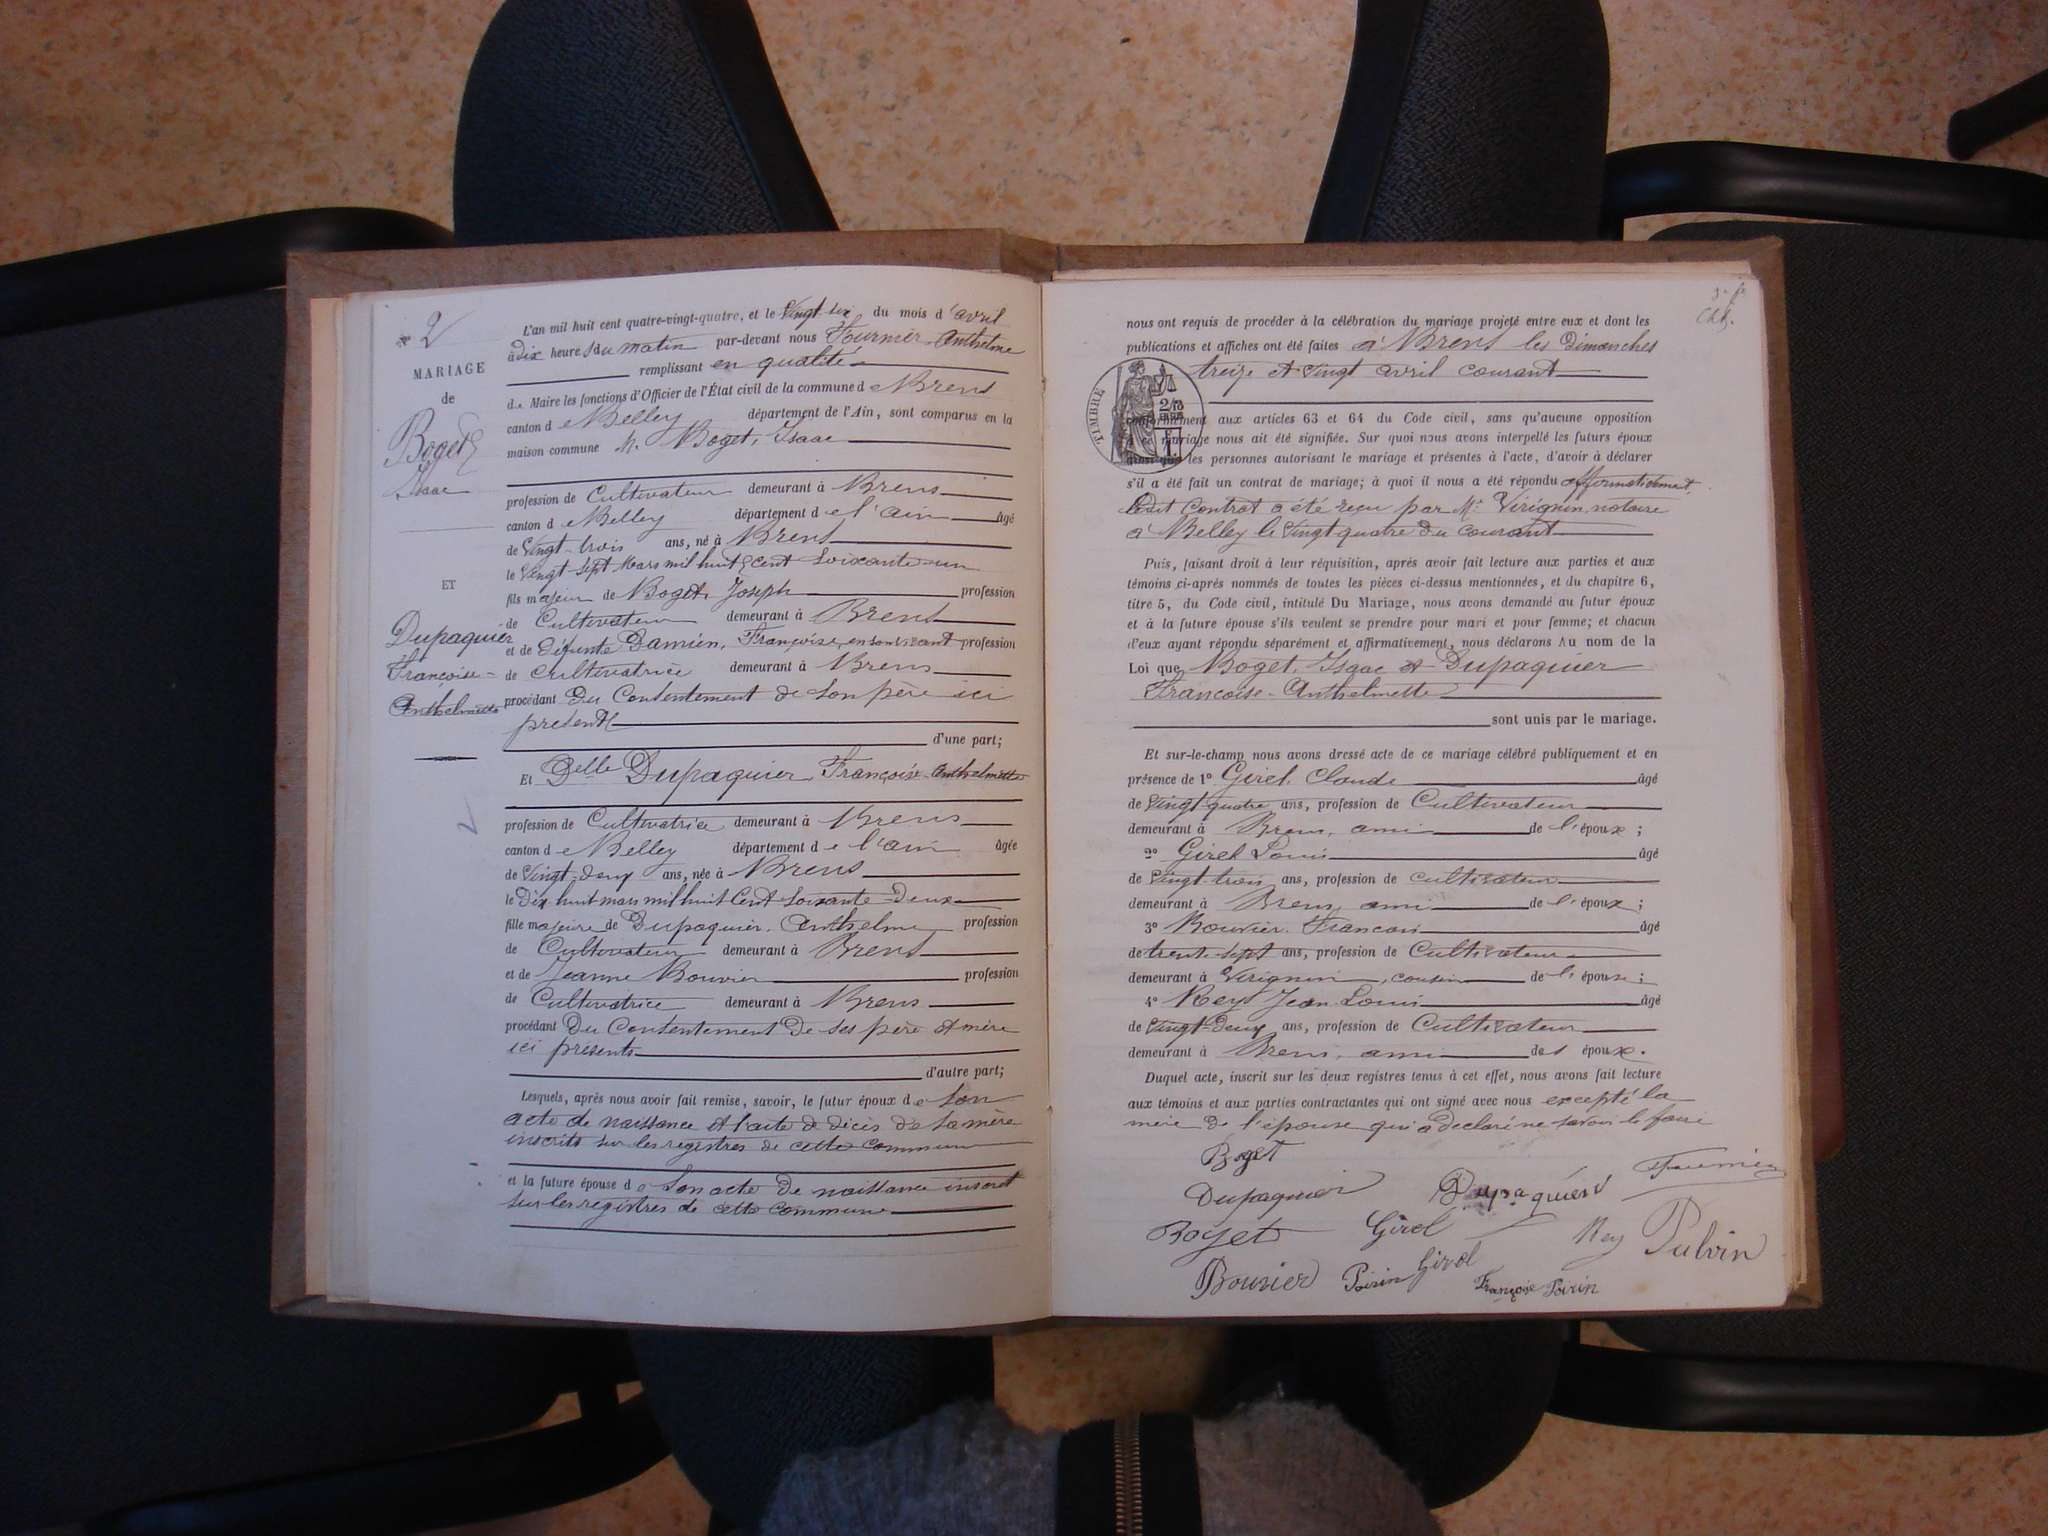 N° 2
MARIAGE
de
Boget
Isaac
ET
Dupaquier
Françoise-
Anthelmette
L'an mil huit cent quatre-vingt-quatre, et le vingt-six du mois d'avril
à dix heures du matin par-devant nous Fournier Anthelme
remplissant en qualité
de Maire les fonctions d'Officier de l'État civil de la commune de Brens
canton de Belley département de l'Ain, sont comparus en la
maison commune M. Boget, Isaac
profession de Cultivateur demeurant à Brens
canton de Belley département de l'ain âgé
de vingt-trois ans, né à Brens
le vingt sept Mars mil huit cent soixante un
fils majeur de Boget, Joseph profession
de Cultivateur demeurant à Brens
et de défunte Damien, Françoise, en son vivant profession
de Cultivatrice demeurant à Brens
procédant du Consentement de son père ici
présent
d'une part;
Et Delle Dupaquier Françoise-Anthelmette
profession de Cultivatrice demeurant à Brens
canton de Belley département de l'ain âgée
de vingt-deux ans, née à Brens
le dix huit mars mil huit Cent soixante-Deux
fille majeure de Dupaquier, Anthelme profession
de Cultivateur demeurant à Brens
et de Jeanne Bouvier profession
de Cultivatrice demeurant à Brens
procédant du Consentement de ses père et mère
ici présents
d'autre part;
Lesquels, après nous avoir fait remise, savoir, le futur époux de son
acte de naissance et l'acte de décès de sa mère
inscrits sur les registres de cette commune
et la future épouse de son acte de naissance inscrit
sur les registres de cette commune
nous ont requis de procéder à la célébration du mariage projeté entre eux et dont les
publications et affiches ont été faites à Brens les Dimanches
treize et vingt avril courant
TIMBRE
conformément aux articles 63 et 64 du Code civil, sans qu'aucune opposition
à ce mariage nous ait été signifiée. Sur quoi nous avons interpellé les futurs époux
ainsi que les personnes autorisant le mariage et présentes à l'acte, d'avoir à déclarer
s'il a été fait un contrat de mariage; à quoi il nous a été répondu affirmativement.
Ledit Contrat a été reçu par Me Virignin, notaire
à Belley le vingt quatre du courant
Puis, faisant droit à leur réquisition, après avoir fait lecture aux parties et aux
témoins ci-après nommés de toutes les pièces ci-dessus mentionnées, et du chapitre 6,
titre 5, du Code civil, intitulé Du Mariage, nous avons demandé au futur époux
et à la future épouse s'ils veulent se prendre pour mari et pour femme; et chacun
d'eux ayant répondu séparément et affirmativement, nous déclarons AU nom de la
Loi que Boget, Isaac et Dupaquier
Françoise-Anthelmette
sont unis par le mariage.
Et sur-le-champ nous avons dressé acte de ce mariage célébré publiquement et en
présence de 1° Girel Claude âgé
de vingt-quatre ans, profession de Cultivateur
demeurant à Brens, ami de l'époux;
2° Girel Louis âgé
de vingt-trois ans, profession de cultivateur
demeurant à Brens ami de l'époux;
3° Bouvier Francois âgé
de trente-sept ans, profession de Cultivateur
demeurant à Virignin, cousin de l'épouse;
4° Rey Jean-Louis âgé
de vingt-Deux ans, profession de Cultivateur
demeurant à Brens, ami des époux.
Duquel acte, inscrit sur les deux registres tenus à cet effet, nous avons fait lecture
aux témoins et aux parties contractantes qui ont signé avec nous excepté la
mère de l'épouse qui a declaré ne savoir le faire
Boget
Dupaquier Dupaquier Fournier
Boget Girel Rey Pulvin
Bouvier Poirin Girel Françoise Poirin